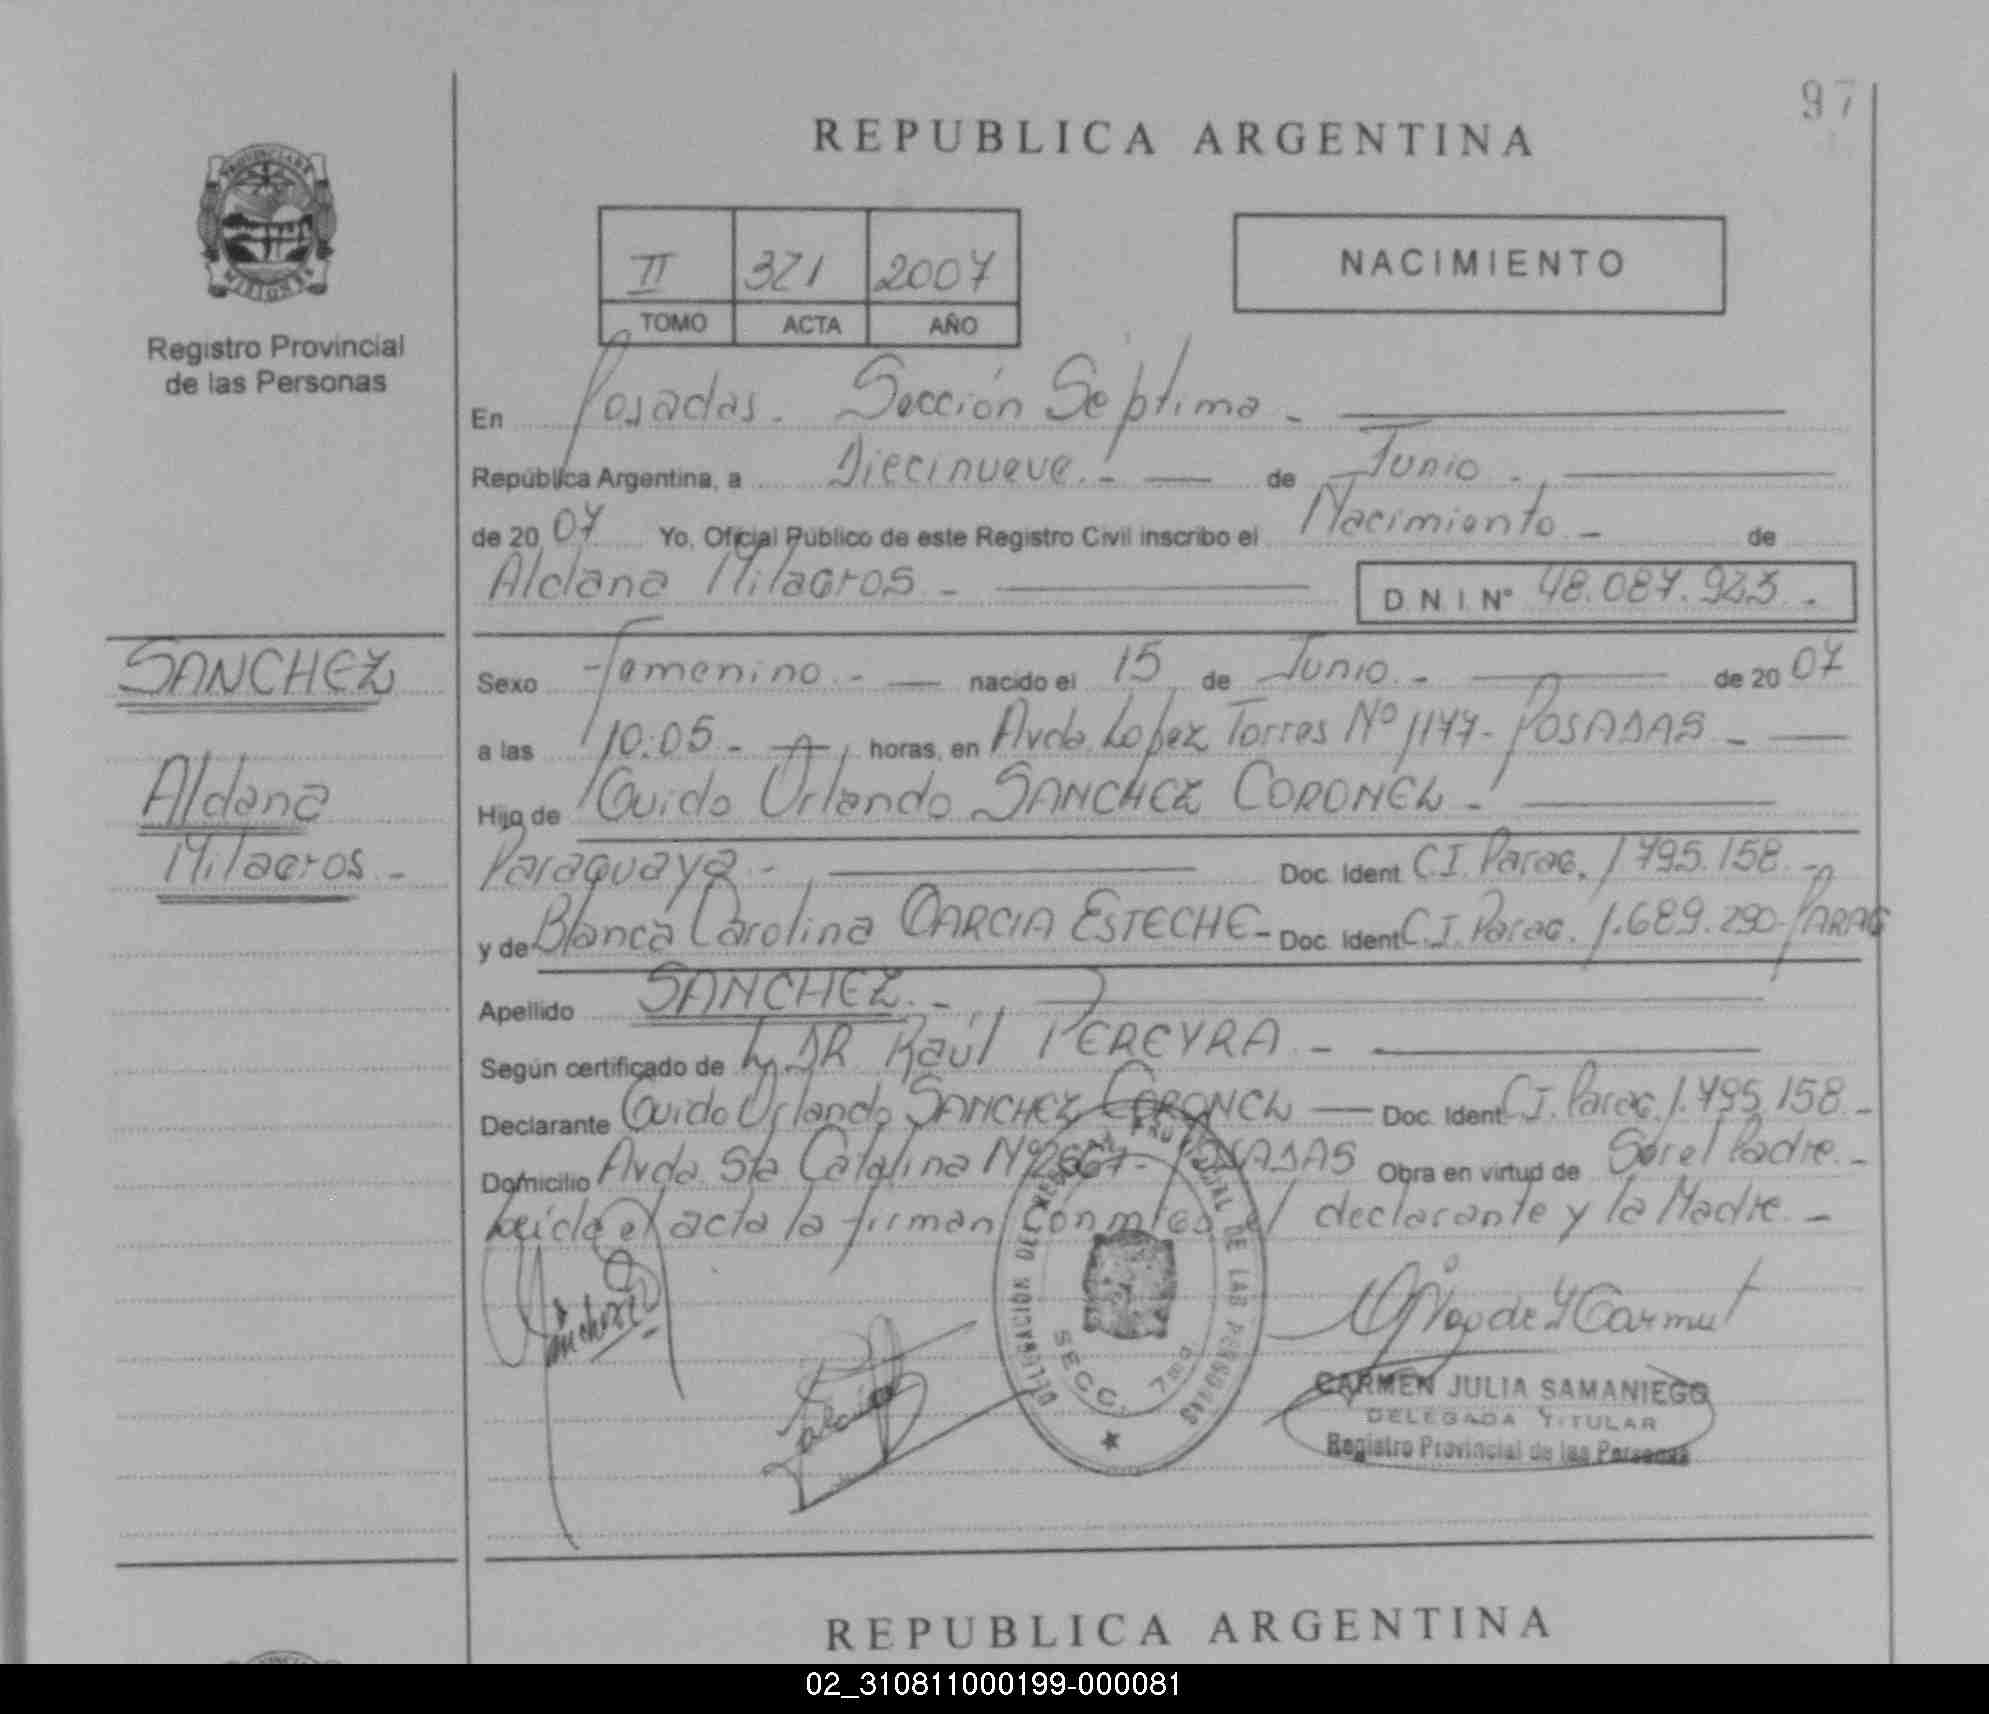 97
REPUBLICA ARGENTINA
PROVINCIA DE
MISIONES
Registro Provincial
de las Personas
II 321 2007
TOMO ACTA AÑO
NACIMIENTO
En Posadas. Sección Séptima -
República Argentina, a Diecinueve.- de Junio.-
de 20 07 Yo, Oficial Público de este Registro Civil inscribo el Nacimiento - de
Aldana Milagros - D N I Nº 48.087.923.-
SANCHEZ
Aldana
Milagros -
Sexo Femenino.- nacido el 15 de Junio.- de 20 07
a las 10:05.- horas, en Avda Lopez Torres Nº 1177- POSADAS -
Hijo de Guido Orlando SANCHEZ CORONEL -
Paraguaya - Doc. Ident C.I. Parag. 1795.158.-
y de Blanca Carolina GARCIA ESTECHE- Doc. Ident C.I. Parag. 1.689.290- PARAG
Apellido SANCHEZ.-
Según certificado de L. DR Raúl PEREYRA -
Declarante Guido Orlando SANCHEZ CORONEL — Doc. Ident C.I. Parag. 1.795.158 -
Domicilio Avda Sta Catalina Nº 2667- POSADAS Obra en virtud de Ser el Padre.-
Leída el acta la firman conmigo el declarante y la Madre.-
Sanchez
Garcia
DELEGACION DEL REGISTRO PROVINCIAL DE LAS PERSONAS
SECC. 7ma
CARMEN JULIA SAMANIEGO
DELEGADA TITULAR
Registro Provincial de las Personas
REPUBLICA ARGENTINA
02_310811000199-000081